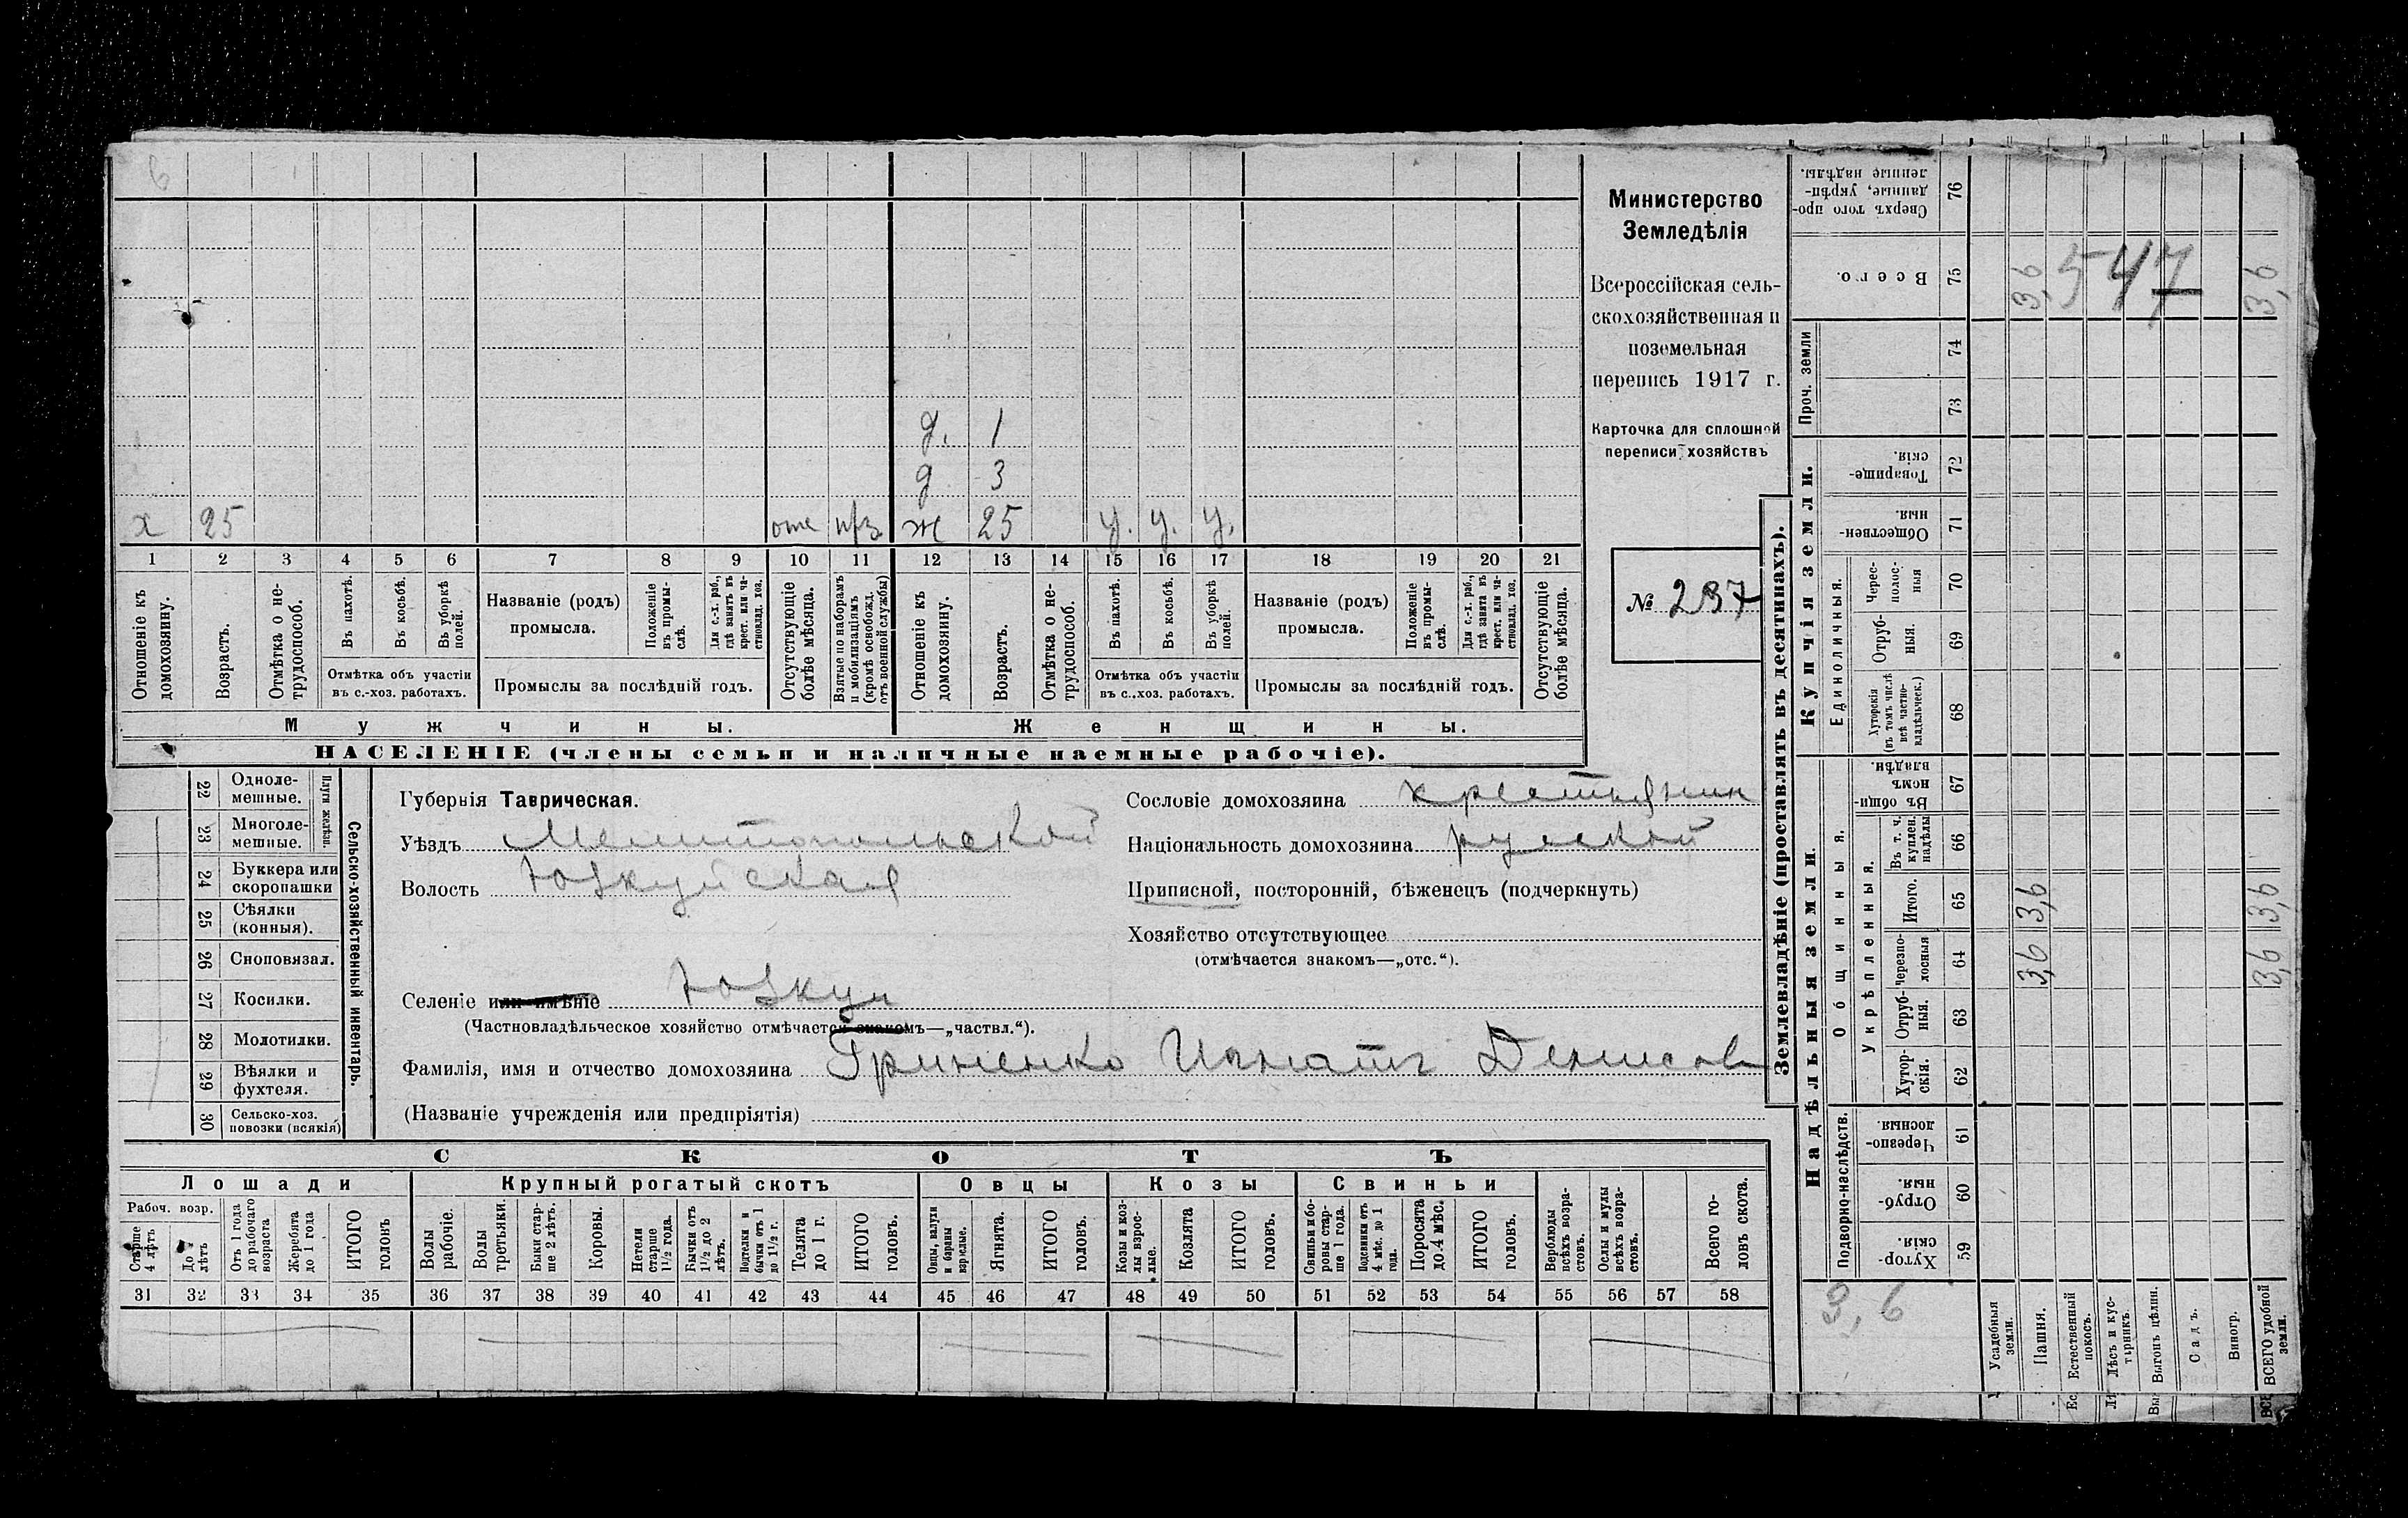 6
д. 1
д 3
х 25 отс прз ж 25 у. у. у.
1 2 3 4 5 6 7 8 9 10 11 12 13 14 15 16 17 18 19 20 21
Отношеніе къ домохозяину.
Возрастъ.
Отмѣтка о нетрудоспособ.
Въ пахотѣ.
Въ косьбѣ.
Въ уборкѣ полей.
Отмѣтка объ участіи
въ с.-хоз. работахъ.
Названіе (родъ)
промысла.
Положеніе въ промыслѣ.
Для с.-х. раб., гдѣ занятъ въ крест. или частновлад. хоз.
Промыслы за послѣдній годъ.
Отсутствующіе болѣе мѣсяца.
Взятые по наборамъ и мобилизаціямъ (кромѣ освобожд. отъ военной службы)
Отношеніе къ домохозяину.
Возрастъ.
Отмѣтка о нетрудоспособ.
Въ пахотѣ.
Въ косьбѣ.
Въ уборкѣ полей.
Отмѣтка объ участіи
въ с.-хоз. работахъ.
Названіе (родъ)
промысла.
Положеніе въ промыслѣ.
Для с.-х. раб., гдѣ занята въ крест. или частновлад. хоз.
Промыслы за послѣдній годъ.
Отсутствующіе болѣе мѣсяца.
Мужчины.
Женщины.
НАСЕЛЕНІЕ (члены семьи и наличные наемные рабочіе).
Министерство
Земледѣлія
Всероссійская сель-
скохозяйственная и
поземельная
перепись 1917 г.
Карточка для сплошной
переписи хозяйствъ
№ 237
22 Одноле-
мешные.
23 Многоле-
мешные.
Плуги желѣзн.
24 Буккера или
скоропашки
25 Сѣялки
(конныя).
26 Сноповязал.
27 Косилки.
28 Молотилки.
29 Вѣялки и
фухтеля.
30 Сельско-хоз.
повозки (всякія)
Сельско-хозяйственный инвентарь.
Губернія Таврическая.
Уѣздъ Мелитопольской
Волость Юзкуйская
Селеніе или имѣніе Юзкуи
(Частновладѣльческое хозяйство отмѣчается знакомъ—„частвл.“).
Фамилія, имя и отчество домохозяина Гриненко Игнатъ Денисов
(Названіе учрежденія или предпріятія)
Сословіе домохозяина крестьянин
Національность домохозяина русской
Приписной, посторонній, бѣженецъ (подчеркнуть)
Хозяйство отсутствующее
(отмѣчается знакомъ—„отс.“).
СКОТЪ
Лошади
Крупный рогатый скотъ
Овцы
Козы
Свиньи
Рабоч. возр.
Старше 4 лѣтъ
До 4 лѣтъ
Отъ 1 года до рабочаго возраста
Жеребята до 1 года
ИТОГО головъ
Волы рабочіе.
Волы третьяки.
Быки старше 2 лѣтъ.
Коровы.
Нетели старше 1½ года.
Бычки отъ 1½ до 2 лѣтъ.
Подтелки и бычки отъ 1 до 1½ г.
Телята до 1 г.
ИТОГО головъ.
Овцы, валухи и бараны взрослые.
Ягнята.
ИТОГО головъ.
Козы и козлы взрослые.
Козлята
ИТОГО головъ.
Свиньи и боровы старше 1 года.
Подсвинки отъ 4 мѣс. до 1 года.
Поросята до 4 мѣс.
ИТОГО головъ.
Верблюды всѣхъ возрастовъ.
Ослы и мулы всѣхъ возрастовъ.
Всего головъ скота.
31 32 33 34 35 36 37 38 39 40 41 42 43 44 45 46 47 48 49 50 51 52 53 54 55 56 57 58
Землевладѣніе (проставлять въ десятинахъ).
Надѣльныя земли.
Купчія земли.
Проч. земли
Подворно-наслѣдств.
Общинныя.
Укрѣпленныя.
Единоличныя.
Сверхъ того проданные, укрѣпленные надѣлы. 76
Всего. 75 3,6 547 3,6
74
73
Товарищескія. 72
Общественныя. 71
Чересполосныя 70
Отрубныя. 69
Хуторскія (въ томъ числѣ всѣ частновладѣльческ.) 68
Въ общинномъ владѣн. 67
Въ т. ч. куплен. надѣлы 66
Итого. 65 3,6 3,6
Черезполосныя 64 3,6 3,6
Отрубныя. 63
Хуторскія. 62
Черезполосныя. 61
Отрубныя. 60
Хуторскія. 59
3,6
Усадебныя земли.
Пашня.
Естественный покосъ.
Лѣсъ и кустарникъ.
Выгонъ цѣлин.
Садъ.
Виногр.
ВСЕГО удобной земли.